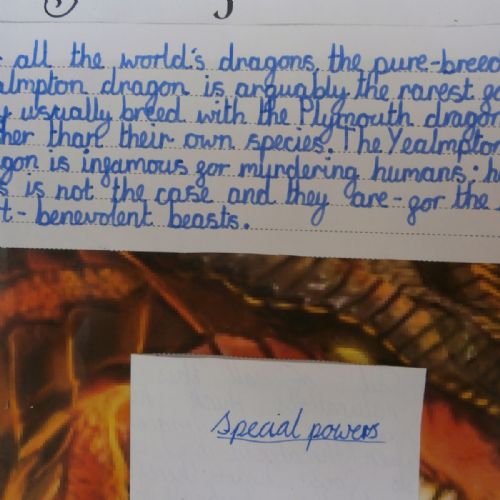 all the world's dragons, the pure-breed
almpton dragon is arguably the rarest
usually breed with the Plymouth dragon
her than their own species. The Yealmpton
gon is infamous for murdering humans; h
s is not the case and they are - for the
t - benevolent beasts.
Special powers